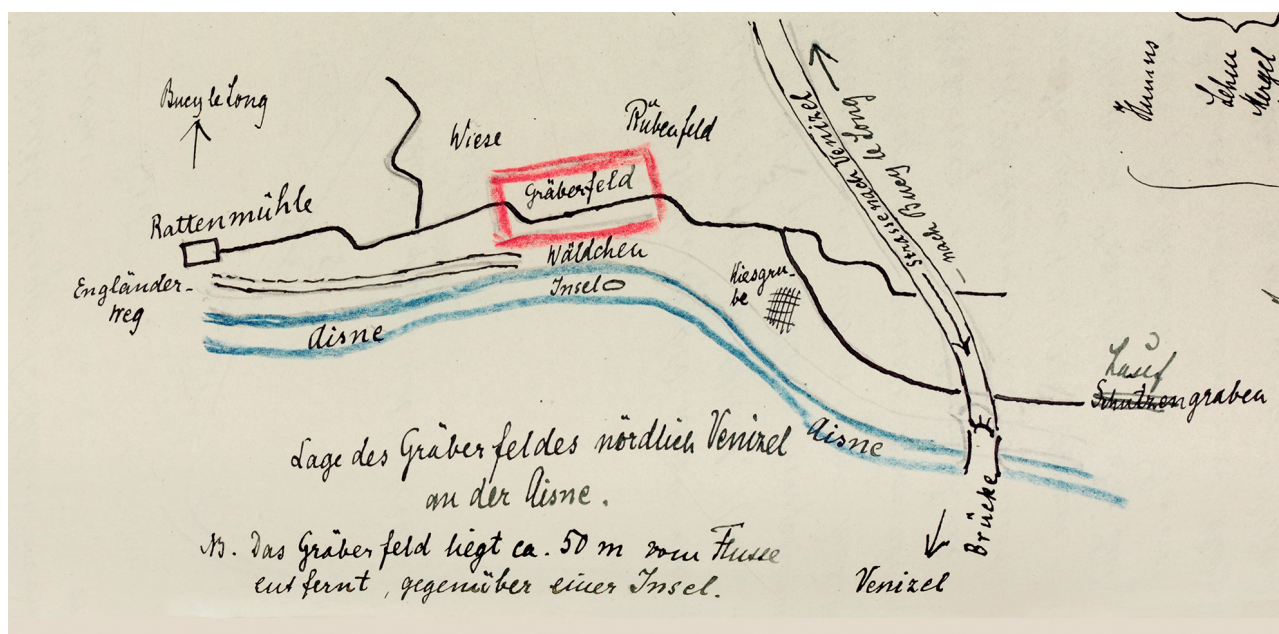 Bucy le Long
Wiese
Rübenfeld
Rattenmühle
Gräberfeld
Engländer-
weg
Wäldchen
Insel
Aisne
Kiesgru-
be
Strasse nach Venizel
– nach Bucy le Long
Humus
Lehm
Mergel
Lauf
Schützengraben
Aisne
Brücke
Venizel
Lage des Gräberfeldes nördlich Venizel
an der Aisne.
NB. Das Gräberfeld liegt ca. 50 m vom Flusse
entfernt, gegenüber einer Insel.